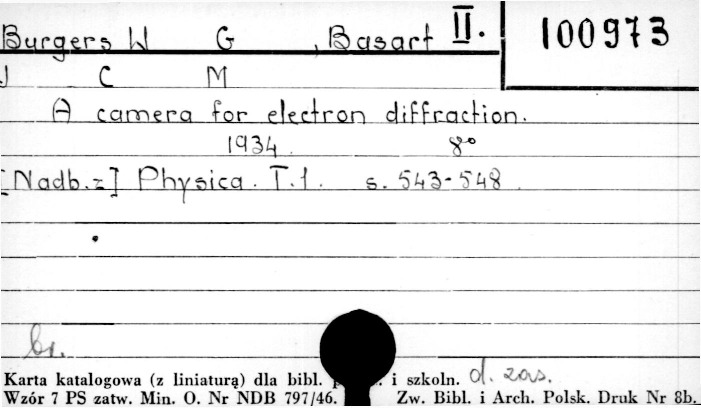 Burgers W G , Basart II. 100973
J C M
A camera for electron diffraction.
1934. 8°
[Nadb. z] Physica. T.1. s. 543-548.
br.
Karta katalogowa (z liniaturą) dla bibl. i szkoln. d. zas.
Wzór 7 PS zatw. Min. O. Nr NDB 797/46. Zw. Bibl. i Arch. Polsk. Druk Nr 8b.